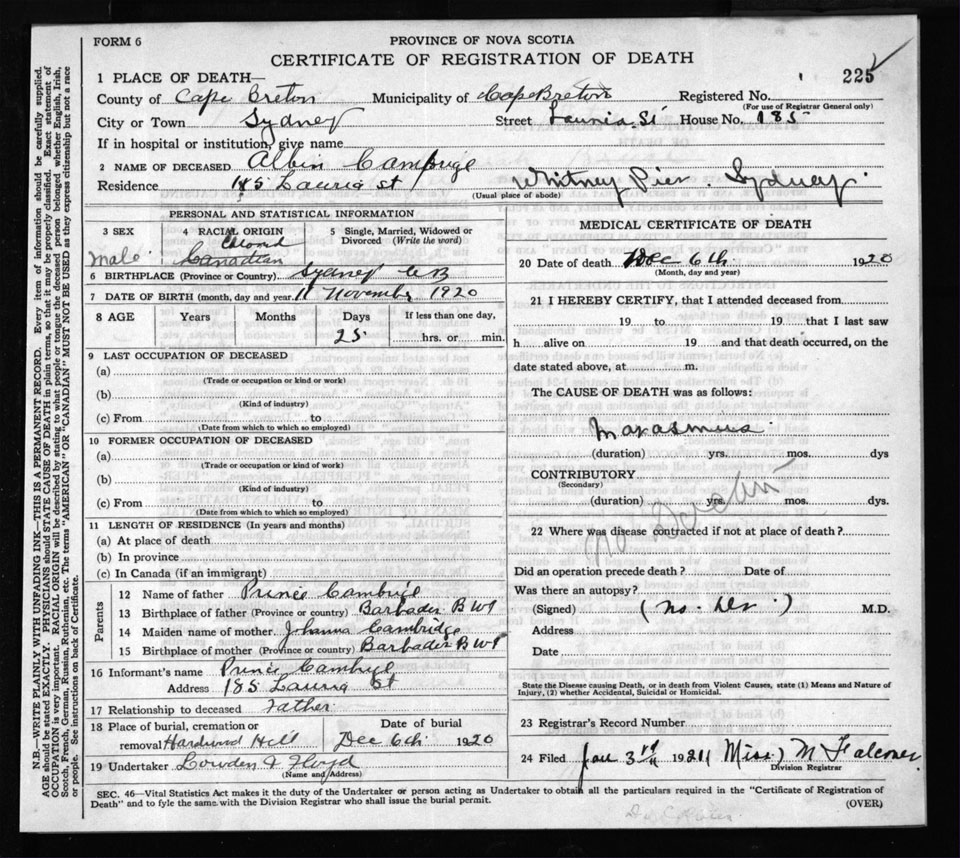 FORM 6
PROVINCE OF NOVA SCOTIA
CERTIFICATE OF REGISTRATION OF DEATH
225
1 PLACE OF DEATH—
County of Cape Breton Municipality of Cape Breton Registered No.
(For use of Registrar General only)
City or Town Sydney Street Lauria St House No. 185
If in hospital or institution, give name
2 NAME OF DECEASED Albin Cambrige
Residence 185 Lauria St Whitney Pier. Sydney.
(Usual place of abode)
PERSONAL AND STATISTICAL INFORMATION
3 SEX
Male
4 RACIAL ORIGIN
Colored
Canadian
5 Single, Married, Widowed or Divorced (Write the word)
6 BIRTHPLACE (Province or Country) Sydney C B
7 DATE OF BIRTH (month, day and year) 11 November 1920
8 AGE Years Months Days If less than one day,
25 hrs. or min.
9 LAST OCCUPATION OF DECEASED
(a)
(Trade or occupation or kind or work)
(b)
(Kind of industry)
(c) From to
(Date from which to which so employed)
10 FORMER OCCUPATION OF DECEASED
(a)
(Trade or occupation or kind or work)
(b)
(Kind of industry)
(c) From to
(Date from which to which so employed)
11 LENGTH OF RESIDENCE (In years and months)
(a) At place of death
(b) In province
(c) In Canada (if an immigrant)
Parents
12 Name of father Prince Cambrige
13 Birthplace of father (Province or country) Barbados B W I
14 Maiden name of mother Johanna Cambridge
15 Birthplace of mother (Province or country) Barbados B W I
16 Informant's name Prince Cambrige
Address 185 Lauria St
17 Relationship to deceased Father
18 Place of burial, cremation or removal Hardwood Hill Date of burial Dec 6th 1920
19 Undertaker Lowden & Floyd
(Name and Address)
MEDICAL CERTIFICATE OF DEATH
20 Date of death Dec 6th 1920
(Month, day and year)
21 I HEREBY CERTIFY, that I attended deceased from
19 to 19 that I last saw
h alive on 19 and that death occurred, on the
date stated above, at m.
The CAUSE OF DEATH was as follows:
Marasmus
(duration) yrs. mos. dys
CONTRIBUTORY
(Secondary)
(duration) yrs. mos. dys.
No Doctor
22 Where was disease contracted if not at place of death?
Did an operation precede death? Date of
Was there an autopsy?
(Signed) (No. Dr.) M.D.
Address
Date
State the Disease causing Death, or in death from Violent Causes, state (1) Means and Nature of
Injury, (2) whether Accidental, Suicidal or Homicidal.
23 Registrar's Record Number
24 Filed Jan 3rd 1921 (Miss) M Falconer
Division Registrar
SEC. 46—Vital Statistics Act makes it the duty of the Undertaker or person acting as Undertaker to obtain all the particulars required in the "Certificate of Registration of
Death" and to fyle the same with the Division Registrar who shall issue the burial permit.
(OVER)
N.B.—WRITE PLAINLY WITH UNFADING INK—THIS IS A PERMANENT RECORD. Every item of information should be carefully supplied.
AGE should be stated EXACTLY. PHYSICIANS should STATE CAUSE OF DEATH in plain terms, so that it may be properly classified. Exact statement of
OCCUPATION is very important. RACIAL ORIGIN will be described by stating to what people or tongue the deceased person belonged whether English, Irish,
Scotch, French, German, Russian, Ruthenian, etc. The terms "AMERICAN" OR "CANADIAN" MUST NOT BE USED as they express citizenship but not a race
or people. See instructions on back of Certificate.